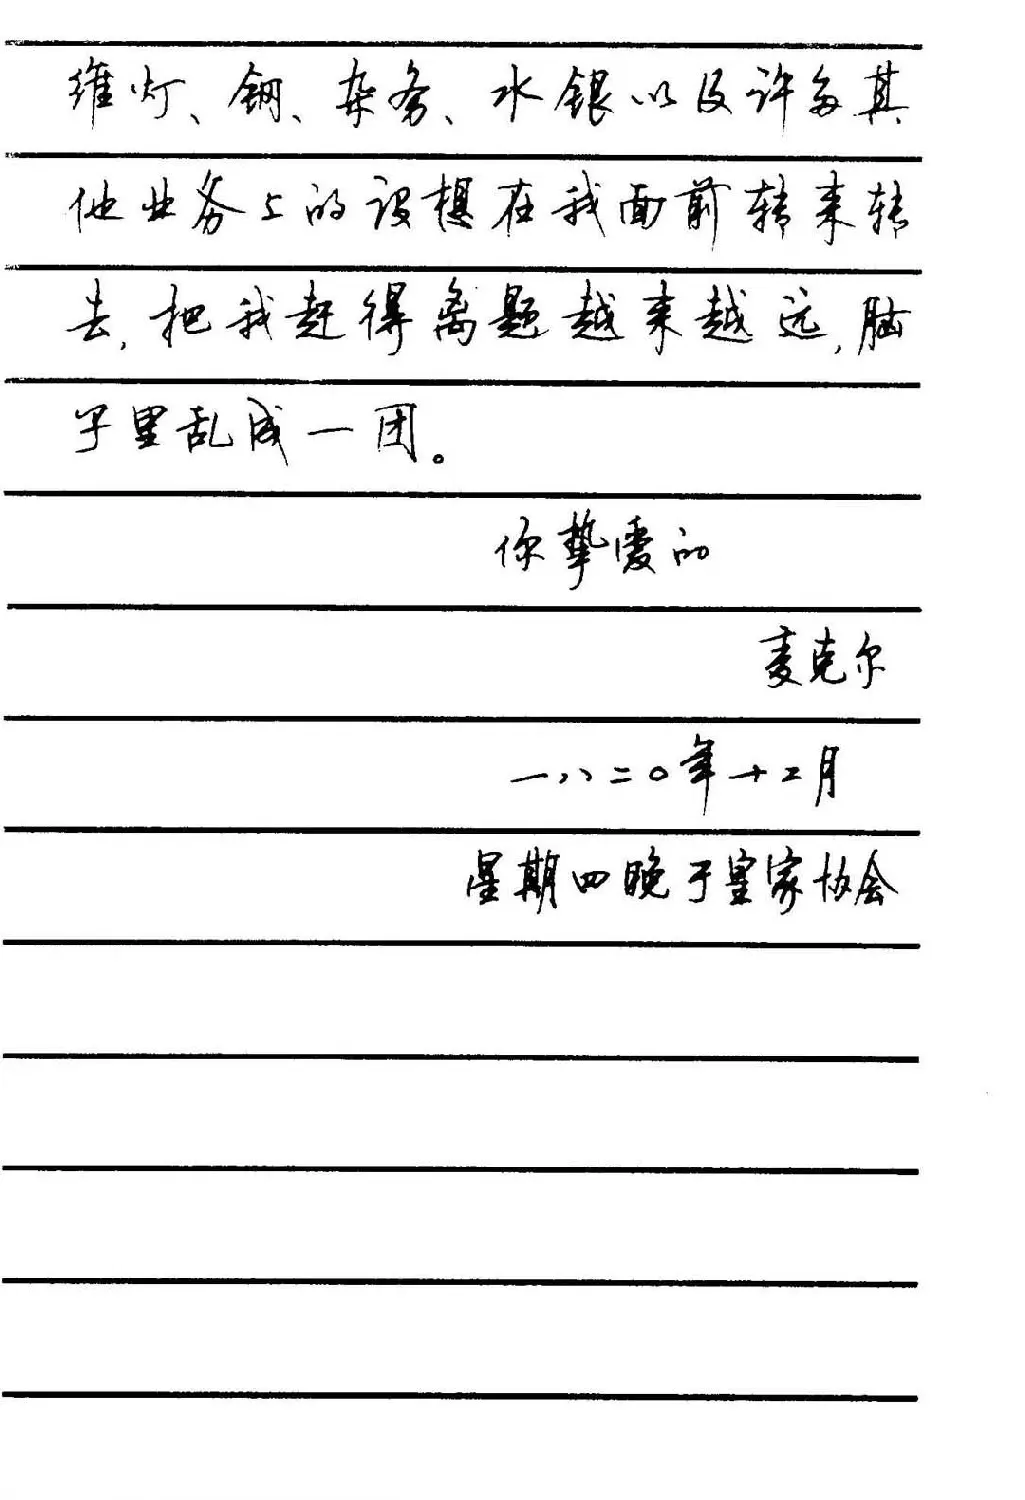 维灯、钢、杂务、水银以及许多其
他业务上的设想在我面前转来转
去,把我赶得离题越来越远,脑
子里乱成一团。
你挚爱的
麦克尔
一八二〇年十二月
星期四晚于皇家协会